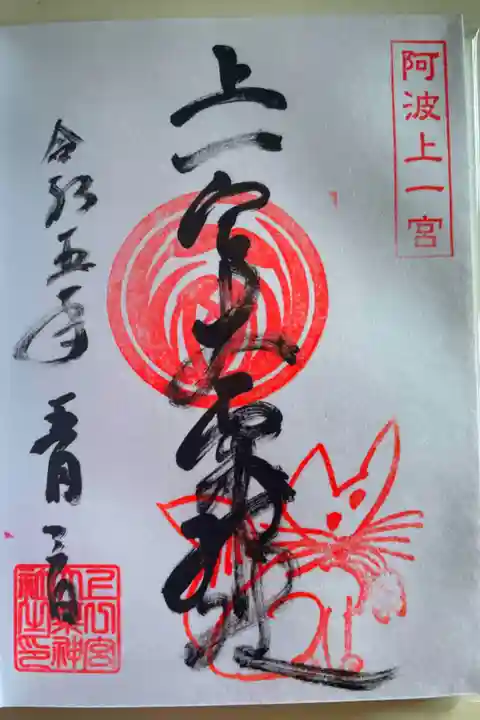 阿波上一宮
上一宮大粟神社
令和五年 五月三日
上一宮大粟神社之印